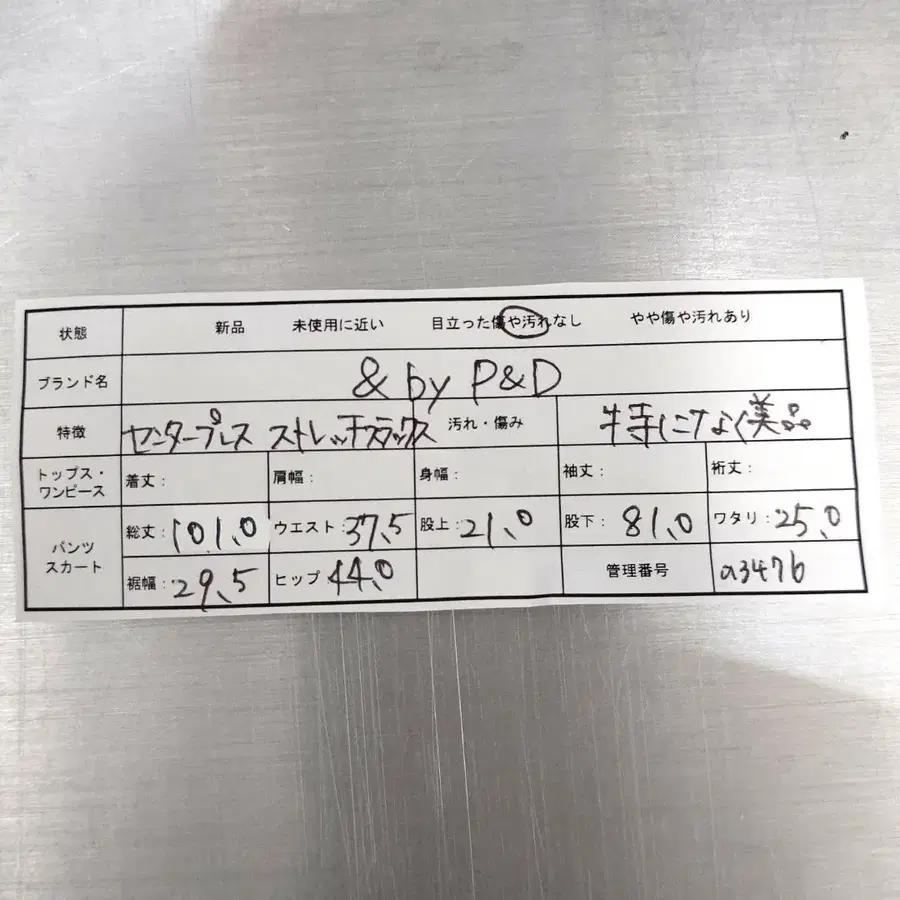 状態 新品 未使用に近い 目立った傷や汚れなし やや傷や汚れあり
ブランド名 & by P&D
特徴 センタープレス ストレッチスラックス 汚れ・傷み 特になく美品
トップス・ワンピース 着丈: 肩幅: 身幅: 袖丈: 裄丈:
パンツ スカート 総丈:101.0 ウエスト:37.5 股上:21.0 股下:81.0 ワタリ:25.0
裾幅:29.5 ヒップ:44.0 管理番号 a3476